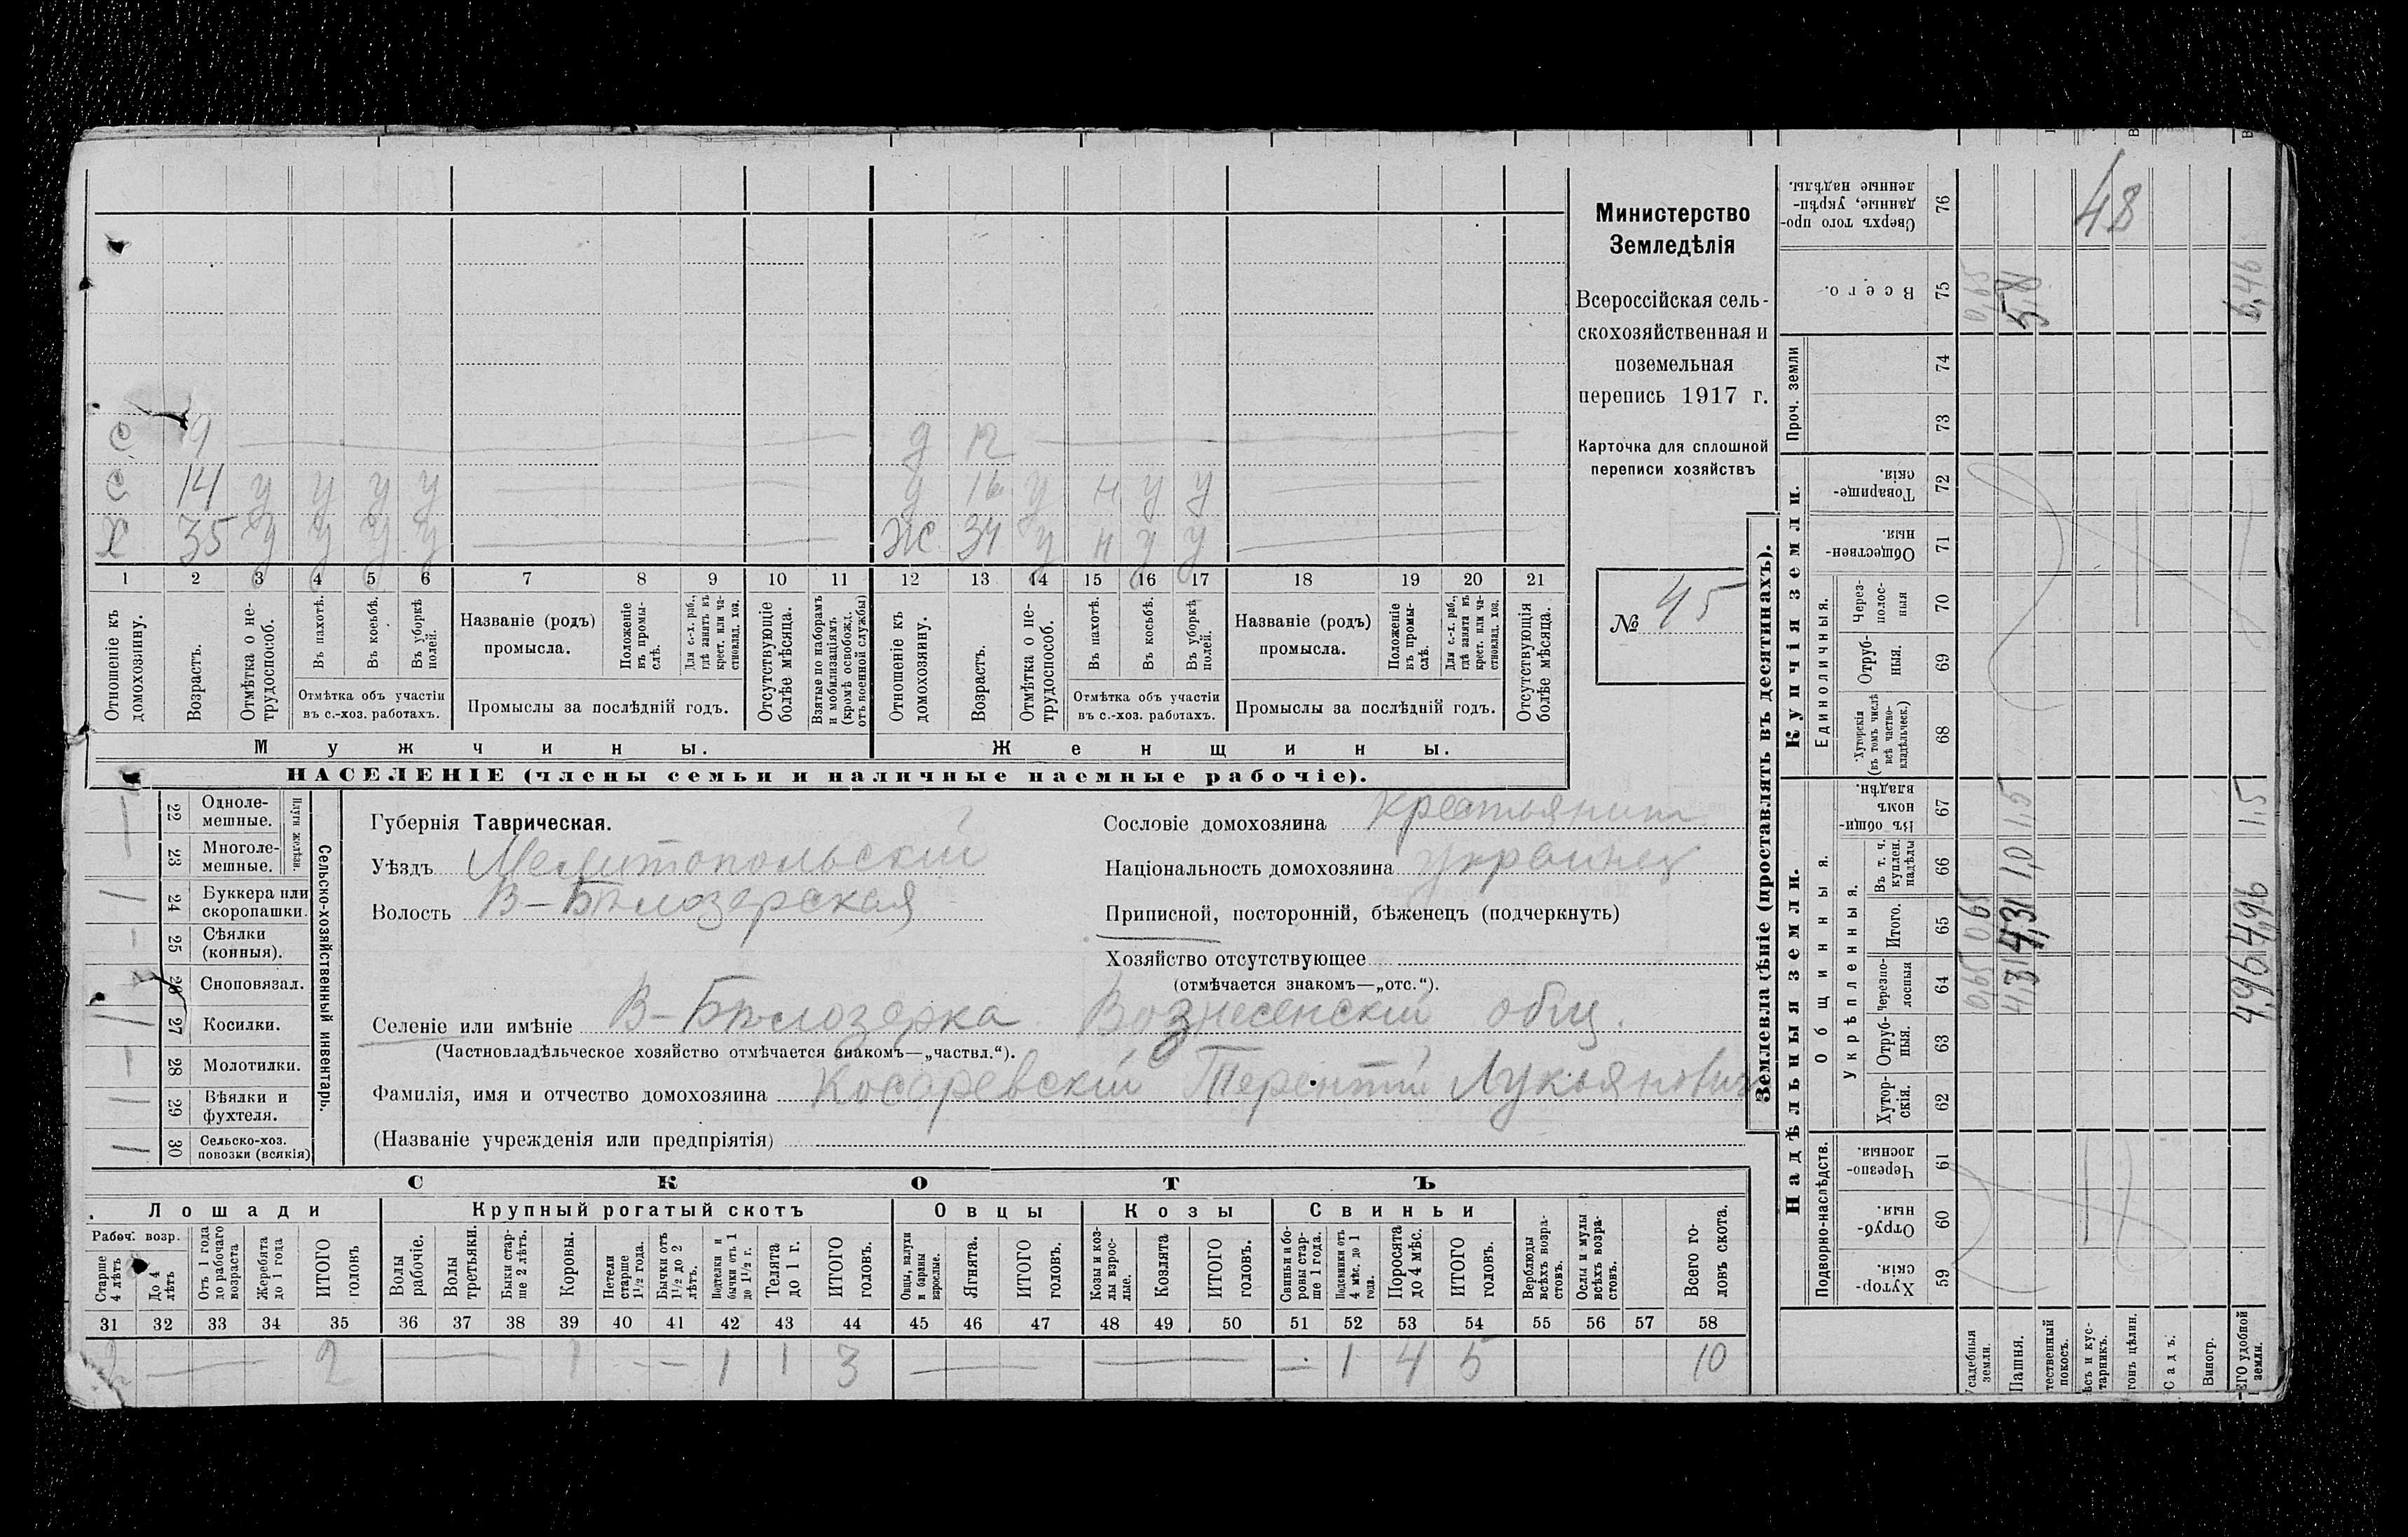 С 9 — Д 12 —
С 14 у у у у — Д 16 у н у у —
Х 35 у у у у — Ж 34 у н у у —
1 2 3 4 5 6 7 8 9 10 11 12 13 14 15 16 17 18 19 20 21
Отношеніе къ домохозяину.
Возрастъ.
Отмѣтка о нетрудоспособ.
Въ пахотѣ.
Въ косьбѣ.
Въ уборкѣ полей.
Отмѣтка объ участіи
въ с.-хоз. работахъ.
Названіе (родъ)
промысла.
Положеніе въ промыслѣ.
Для с.-х. раб., гдѣ занятъ въ крест. или частновлад. хоз.
Промыслы за послѣдній годъ.
Отсутствующіе болѣе мѣсяца.
Взятые по наборамъ и мобилизаціямъ (кромѣ освобожд. отъ военной службы)
Отношеніе къ домохозяину.
Возрастъ.
Отмѣтка о нетрудоспособ.
Въ пахотѣ.
Въ косьбѣ.
Въ уборкѣ полей.
Отмѣтка объ участіи
въ с.-хоз. работахъ.
Названіе (родъ)
промысла.
Положеніе въ промыслѣ.
Для с.-х. раб., гдѣ занята въ крест. или частновлад. хоз.
Промыслы за послѣдній годъ.
Отсутствующія болѣе мѣсяца.
Мужчины.
Женщины.
НАСЕЛЕНІЕ (члены семьи и наличные наемные рабочіе).
Министерство
Земледѣлія
Всероссійская сель-
скохозяйственная и
поземельная
перепись 1917 г.
Карточка для сплошной
переписи хозяйствъ
№ 45
Сельско-хозяйственный инвентарь.
Плуги желѣзн.
22 Одноле-
мешные.
23 Многоле-
мешные.
24 Буккера или
скоропашки. 1
25 Сѣялки
(конныя). —
26 Сноповязал.
27 Косилки. 1
28 Молотилки. —
29 Вѣялки и
фухтеля. 1
30 Сельско-хоз.
повозки (всякія) 1
Губернія Таврическая.
Уѣздъ Мелитопольскій
Волость В-Бѣлозерская
Сословіе домохозяина крестьянин
Національность домохозяина украинец
Приписной, посторонній, бѣженецъ (подчеркнуть)
Хозяйство отсутствующее
(отмѣчается знакомъ—„отс.“).
Селеніе или имѣніе В-Бѣлозерка Вознесенскій общ.
(Частновладѣльческое хозяйство отмѣчается знакомъ—„частвл.“).
Фамилія, имя и отчество домохозяина Косаревскій Терентій Лукьянович
(Названіе учрежденія или предпріятія)
СКОТЪ
Лошади
Крупный рогатый скотъ
Овцы
Козы
Свиньи
Рабоч. возр.
Старше 4 лѣтъ
До 4 лѣтъ
Отъ 1 года до рабочаго возраста
Жеребята до 1 года
ИТОГО головъ
Волы рабочіе.
Волы третьяки.
Быки старше 2 лѣтъ.
Коровы.
Нетели старше 1½ года.
Бычки отъ 1½ до 2 лѣтъ.
Подтелки и бычки отъ 1 до 1½ г.
Телята до 1 г.
ИТОГО головъ.
Овцы, валухи и бараны взрослые.
Ягнята.
ИТОГО головъ.
Козы и козлы взрослые.
Козлята
ИТОГО головъ.
Свиньи и боровы старше 1 года.
Подсвинки отъ 4 мѣс. до 1 года.
Поросята до 4 мѣс.
ИТОГО головъ.
Верблюды всѣхъ возрастовъ.
Ослы и мулы всѣхъ возрастовъ.
Всего головъ скота.
31 32 33 34 35 36 37 38 39 40 41 42 43 44 45 46 47 48 49 50 51 52 53 54 55 56 57 58
2 — 2 — 1 — — 1 1 3 — — — 1 4 5 10
Землевладѣніе (проставлять въ десятинахъ).
Надѣльныя земли.
Купчія земли.
Проч. земли
Подворно-наслѣдств.
Общинныя.
Укрѣпленныя.
Единоличныя.
Сверхъ того проданные, укрѣпленные надѣлы. 76 48
Всего. 75 0,65 5,81 6,46
74
73
Товарищескія. 72
Общественныя. 71
Черезполосныя 70
Отрубныя. 69
Хуторскія (въ томъ числѣ всѣ частновладѣльческ.) 68
Въ общинномъ владѣн. 67 1,5 1,5
Въ т. ч. куплен. надѣлы 66 1,0
Итого. 65 0,65 4,31 4,96
Черезполосныя 64 0,65 4,31 4,96
Отрубныя. 63
Хуторскія. 62
Черезполосныя. 61
Отрубныя. 60
Хуторскія. 59
усадебныя земли.
Пашня.
тественный покосъ.
ѣсъ и кустарникъ.
гонъ цѣлин.
Садъ.
Виногр.
ЕГО удобной земли.